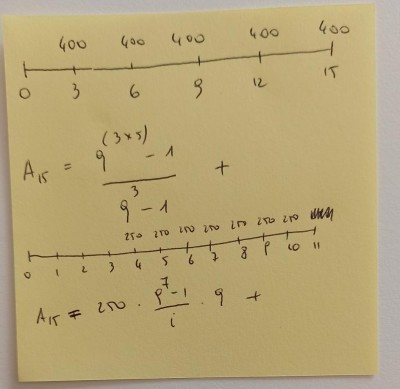 400 400 400 400 400
0 3 6 9 12 15
A₁₅ = (q^(3×5) - 1) / (q³ - 1) +
250 250 250 250 250 250 250
0 1 2 3 4 5 6 7 8 9 10 11
A₁₅ = 250 · (q⁷ - 1) / i · q +